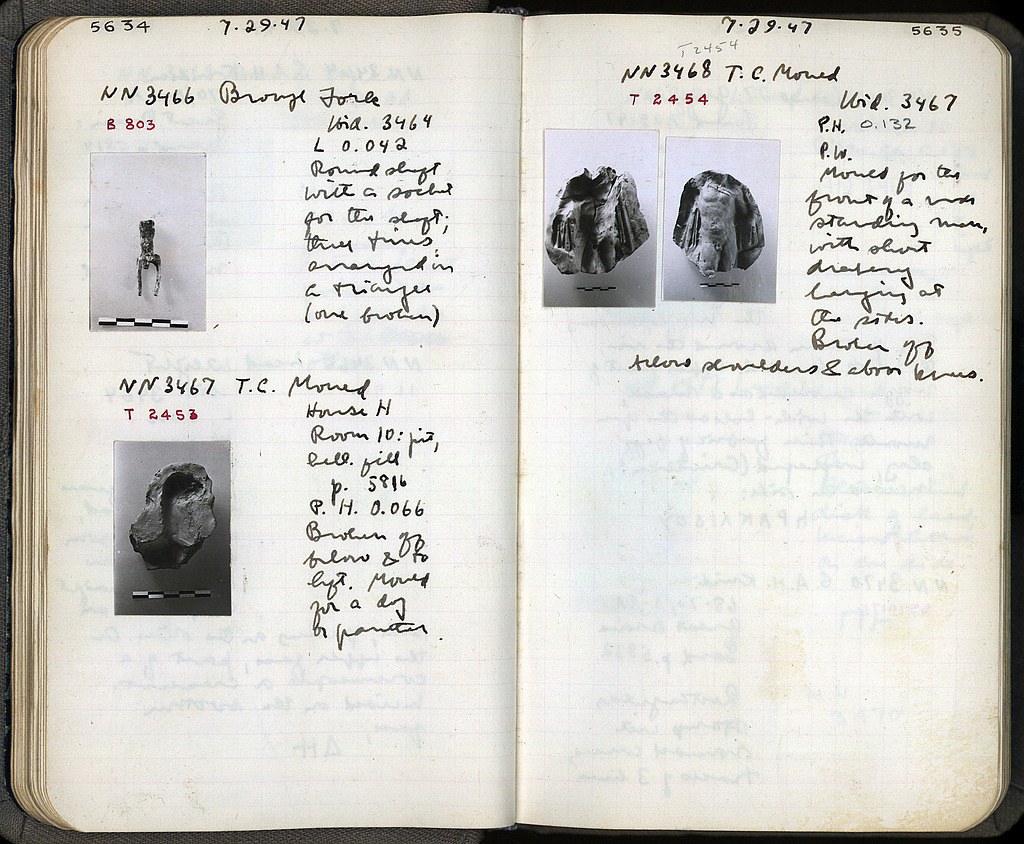 5634 7.29.47
NN 3466 Bronze Fork
B 803
Ibid. 3464
L 0.042
Round shaft
with a socket
for the shaft;
three tines,
arranged in
a triangle
(one broken)
NN 3467 T.C. Mould
T 2453
House H
Room 10: pit,
hell. fill
p. 5816
P. H. 0.066
Broken off
below & to
left. Mould
for a dog
or panther.
7.29.47 5635
T2454
NN3468 T.C. Mould
T 2454
Ibid. 3467
P.H. 0.132
P.W.
Mould for the
front of a nude
standing man,
with short
drapery
hanging at
the sides.
Broken off
below shoulders & above knees.